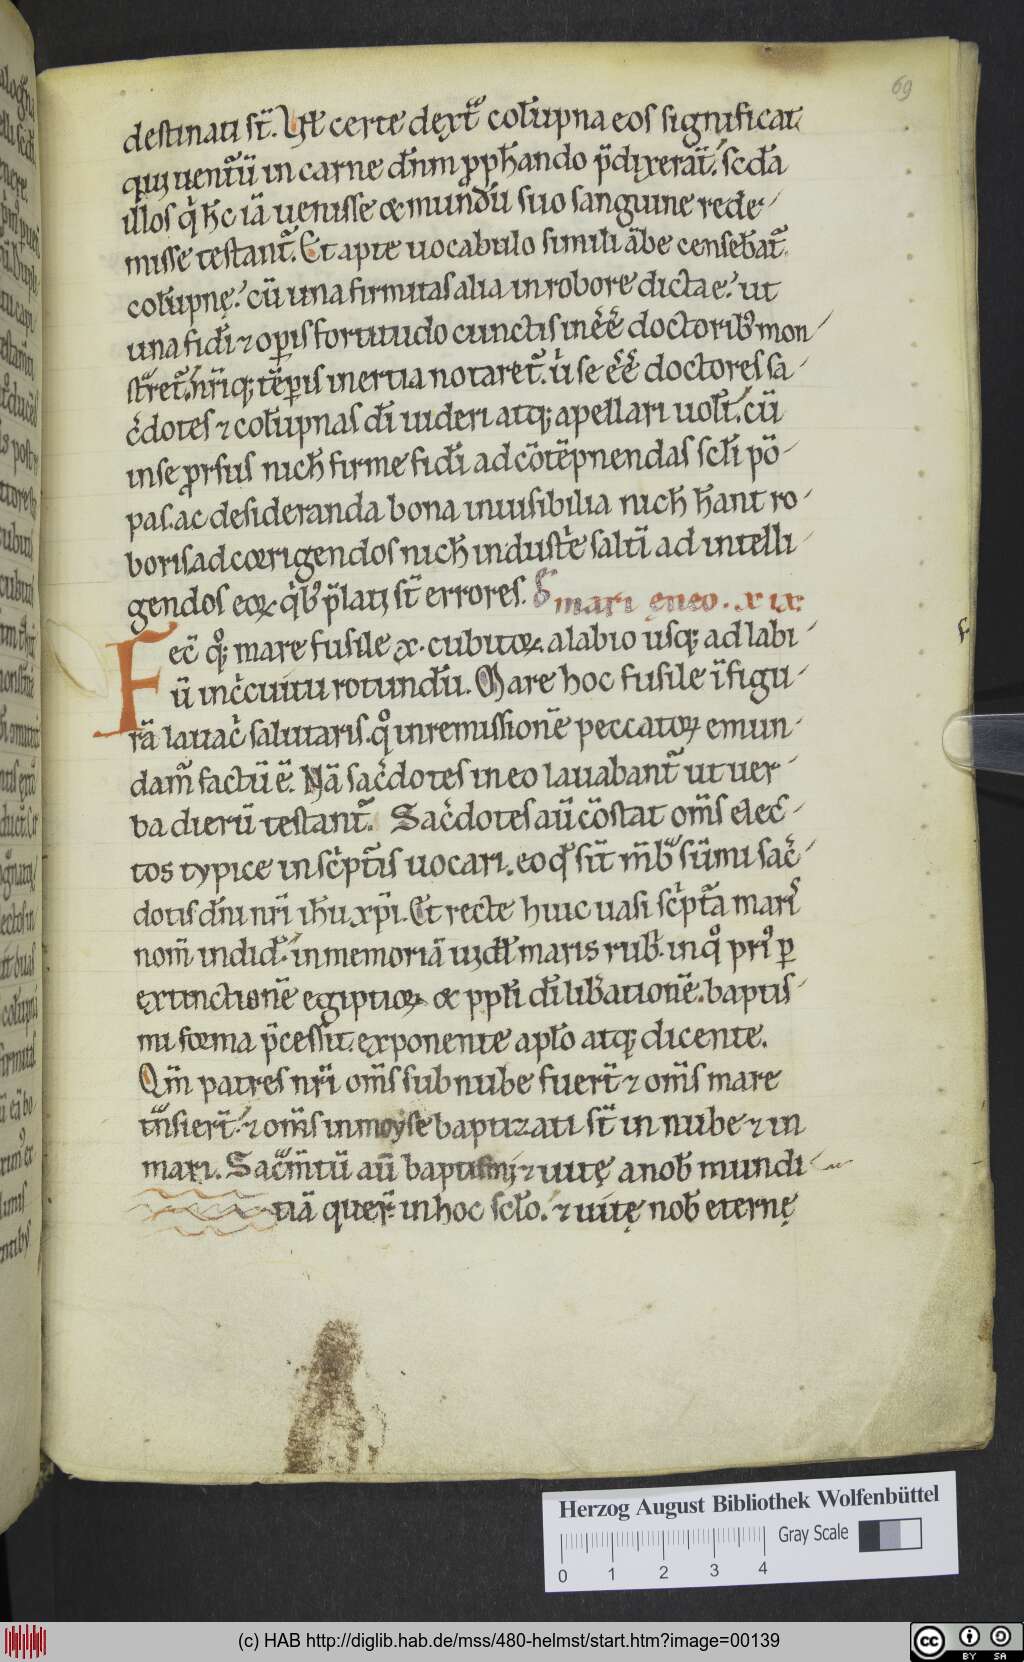 69
destinati st̄. Vel certe dext̄ colūpna eos significat
qui uentūū in carne dn̄m pphando p̄dixerat̄. scđa
illos q̇ hc iā uenisse & mundū suo sanguine rede-
misse testant̄. Et apte uocabulo simili ābe censebat̄
colūpnę. cū una firmitas alia in robore dicta ē. ut
una fidi ⁊ opis fortitudo cunctis inēē doctorib; mon
str̄ret̄. nr̄iq; tēpis inertia notaret̄. u̇ se ēē doctores sa-
c̄dotes ⁊ colūpnas dī uideri atq; apellari uolt̄. cū
in se prsus nich̄ firme fidī ad cōtēpnendas scłi pō-
pas. ac desideranda bona inuisibilia nich̄ h̄ant ro-
boris. ad corrigendos nich̄ industr̄e saltī ad intelli-
gendos eoꝝ q̇b; p̄latī st̄ errores. De
mari eneo. xix
Fec̄ q̊; mare fusile x. cubitoꝝ alabio usq; ad labi-
ū inc̄cuitu rotundū. Mare hoc fusile ī figu-
rā lauac̄ salutaris. q̊ in remissionē peccatoꝝ emun-
dam̄ factū ē. Nā sac̄dotes in eo lauabant̄ ut uer-
ba dierū testant̄. Sac̄dotes aū cōstat om̄s elec-
tos typice in sc̄pt̄is uocari. eo qđ sīt m̄b sūmi sac̄-
dotis dn̄i nr̄i ihū xp̄i. Et recte huic uasi sc̄pt̄a mari
nom̄ indid̄. in memoriā uidel̄ maris rub̄. in q̊ pri᷒ p
extinctionē egiptioꝝ & ppłi dī lib̄ationē. baptis-
mi forma p̄cessit. exponente apło atq; dicente.
Qm̄ patres nr̄i om̄s sub nube fuert̄ ⁊ om̄s mare
tn̄sīert̄. ⁊ om̄s in moyse baptizati st̄ in nube ⁊ in
mari. Sacm̄tū aū baptismi ⁊ uitę anob̄ mundi-
tiā quer̄ in hoc scło. ⁊ uitę nob̄ eternę
Herzog August Bibliothek Wolfenbüttel
Gray Scale
0 1 2 3 4
(c) HAB http://diglib.hab.de/mss/480-helmst/start.htm?image=00139
cc BY SA